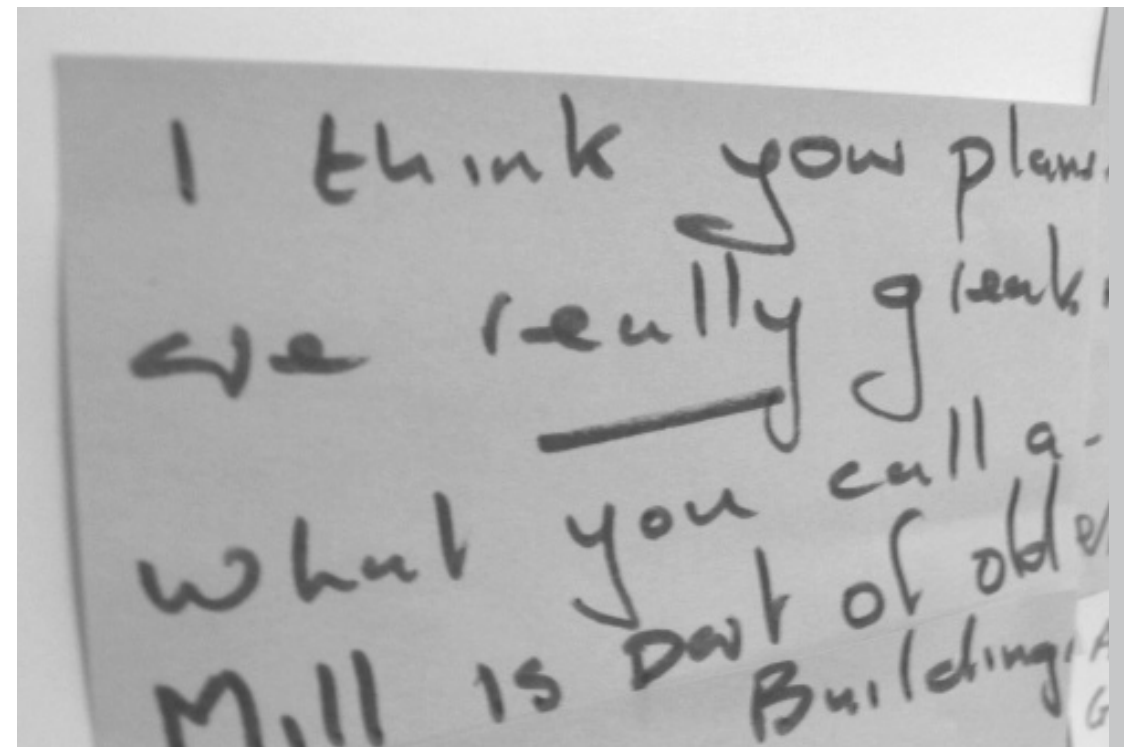 I think your plans
are really great.
what you call a
Mill is part of older
Building.